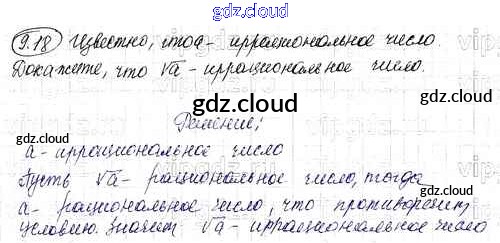 gdz.cloud
9.18 Известно, что a - иррациональное число.
Докажите, что √a - иррациональное число.
gdz.cloud
gdz.cloud
gdz.cloud
Решение:
a - иррациональное число
gdz.cloud
Пусть √a - рациональное число, тогда
a - рациональное число, что противоречит
условию. значит √a - иррациональное число
gdz.cloud